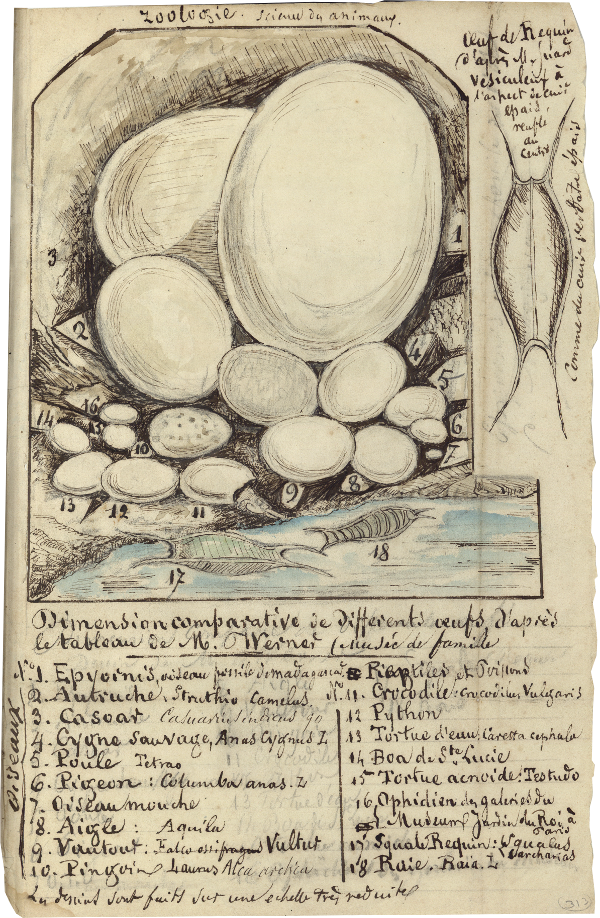 Zoologie. Science des animaux.
Œuf de Requin
d'après M.
Vésiculeux à
l'aspect de cuir
épais,
renflé
au
Centre
Comme du cuir verdatre épais
1
2
3
4
5
6
7
8
9
10
11
12
13
14
15
16
17
18
Dimension comparative de Differents œufs, d'après
le tableau de M. Werner (Musée de famille
Oiseaux
No. 1. Epyornis, oiseau fossile de madagascar.
2. Autruche, Struthio Camelus
3. Casoar
4. Cygne Sauvage, Anas Cygnus L
5. Poule Tetrao
6. Pigeon: Columba anas. L
7. Oiseau mouche
8. Aigle: Aquila
9. Vautour: Falco ossifragus Vultur
10. Pingoin Alca
Reptiles et Poissons
No. 11. Crocodile: Crocodilus Vulgaris
12 Python
13 Tortue d'eau: Caretta cephala
14 Boa de Ste. Lucie
15 Tortue: Testudo
16. Ophidien des galeries du
Museum Jardin du Roi à Paris
17. Squale Requin: Squalus Carcharias
18 Raie. Raia. L
Les dessins sont faits sur une echelle très reduite
(313)